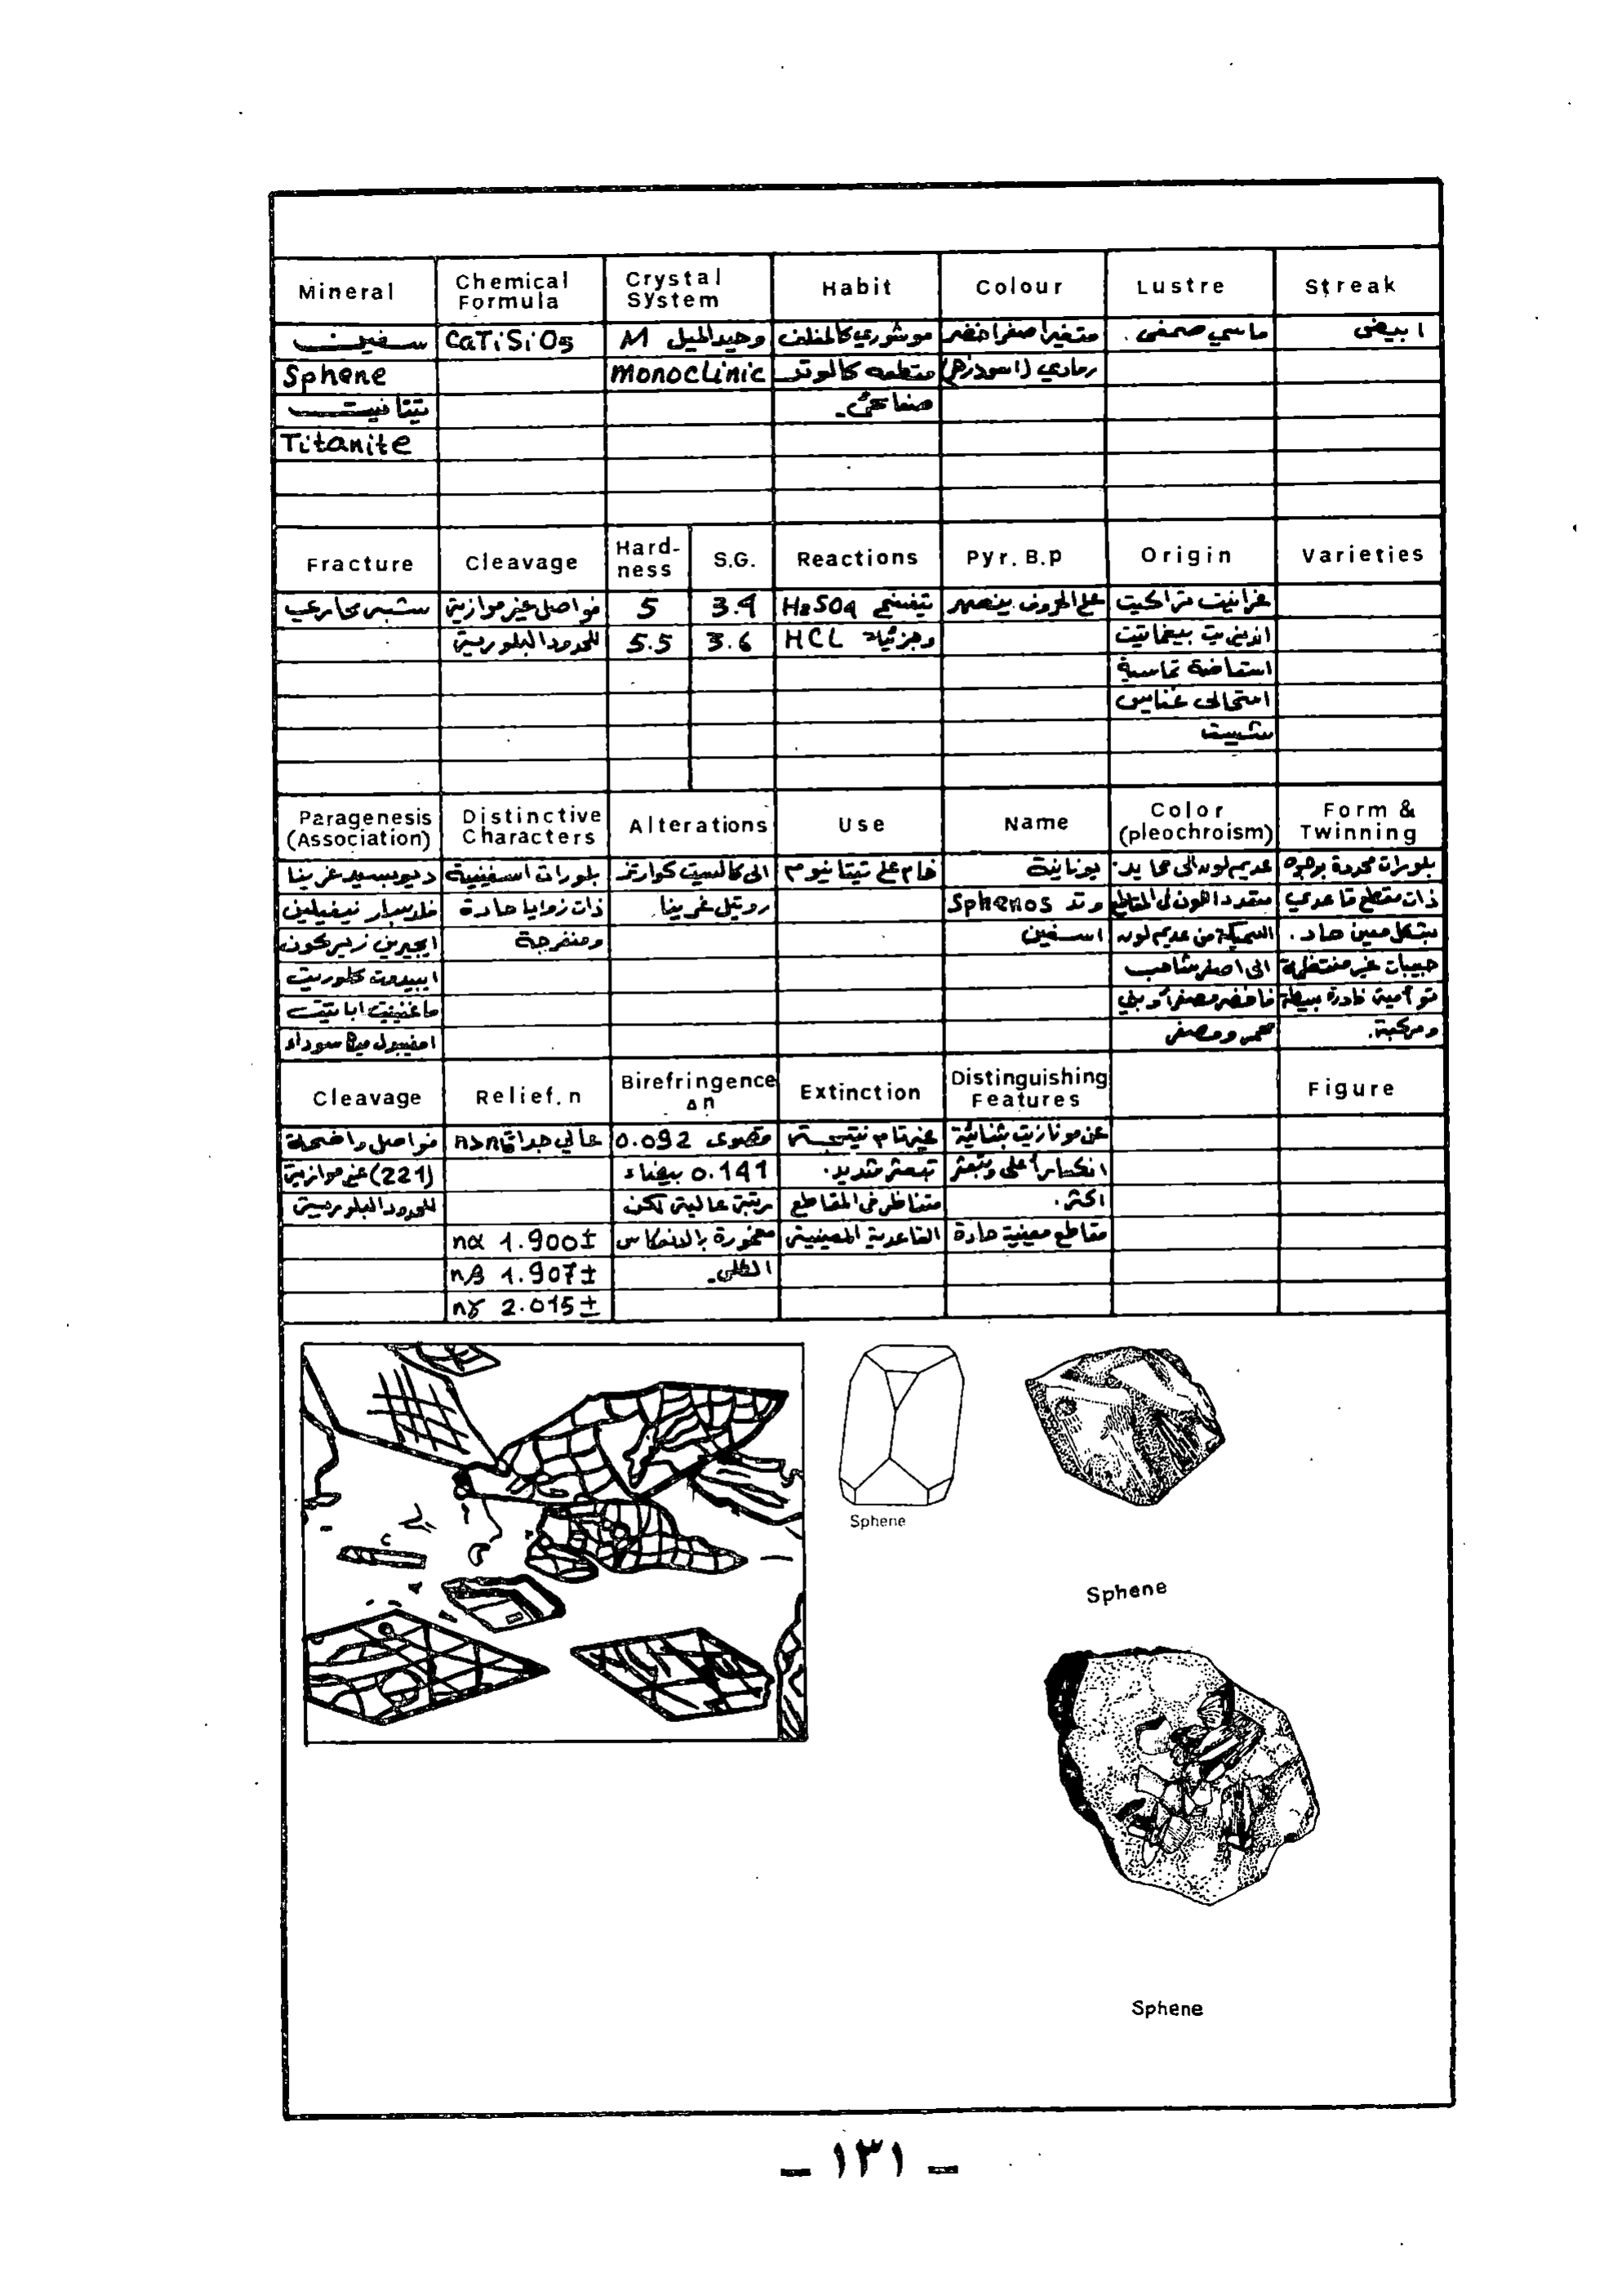 Mineral
Chemical Formula
Crystal System
Habit
Colour
Lustre
Streak
سفين CaTiSiO5 وحيد الميل M موشوري كالمغلف متغير اصفر اخضر ماسي صمغي . ابيض
Sphene monoclinic متطعه كالوتد رمادي (اسود زهر)
تيتانيت صفائحي.
Titanite
Fracture
Cleavage
Hard-ness
S.G.
Reactions
Pyr. B.p
Origin
Varieties
شبه محاري فواصل غير موازية 5 3.4 يتفسخ H2SO4 على الحروف ينصهر غرانيت تراكيت
للحدود البلورية 5.5 3.6 وجزئيا HCL بيغماتيت
تماسية
غنايس
شيست
Paragenesis (Association)
Distinctive Characters
Alterations
Use
Name
Color (pleochroism)
Form & Twinning
ديوبسيد غرينا بلورات اسفينية الى كالسيت كوارتز خام على تيتانيوم يونانية عديم لون الى محايد. بلورات محددة بوجوه
فلدسبار نيفيلين ذات زوايا حادة روتيل غرينا. وتد Sphenos متعدد اللون في المقاطع ذات مقطع قاعدي
ايجيرين زيركون ومنفرجة اسفين السميكة من عديم لون بشكل معين حاد .
ابيدوت كلوريت الى اصفر شاحب حبيبات غير منتظمة
ماغنيتيت اباتيت فاخضر مصفر أو بني توأمية نادرة بسيطة
امفيبول ميكا سوداء محمر ومصفر ومركبة.
Cleavage
Relief. n
Birefringence Δn
Extinction
Distinguishing Features
Figure
فواصل واضحة عالي جدا قصوى 0.092 غير تام نتيجة عن مونازيت بثنائية
(221) غير موازية 0.141 بيضاء تبعثر شديد. انكسار أعلى وتبعثر
للحدود البلورية رتبة عالية لكن متناظر في المقاطع اكثر.
nα 1.900± مغمورة بالانعكاس القاعدية المعينية مقاطع معينية حادة
nβ 1.907± الكلي.
nγ 2.015±
Sphene
Sphene
Sphene
– ١٣١ –